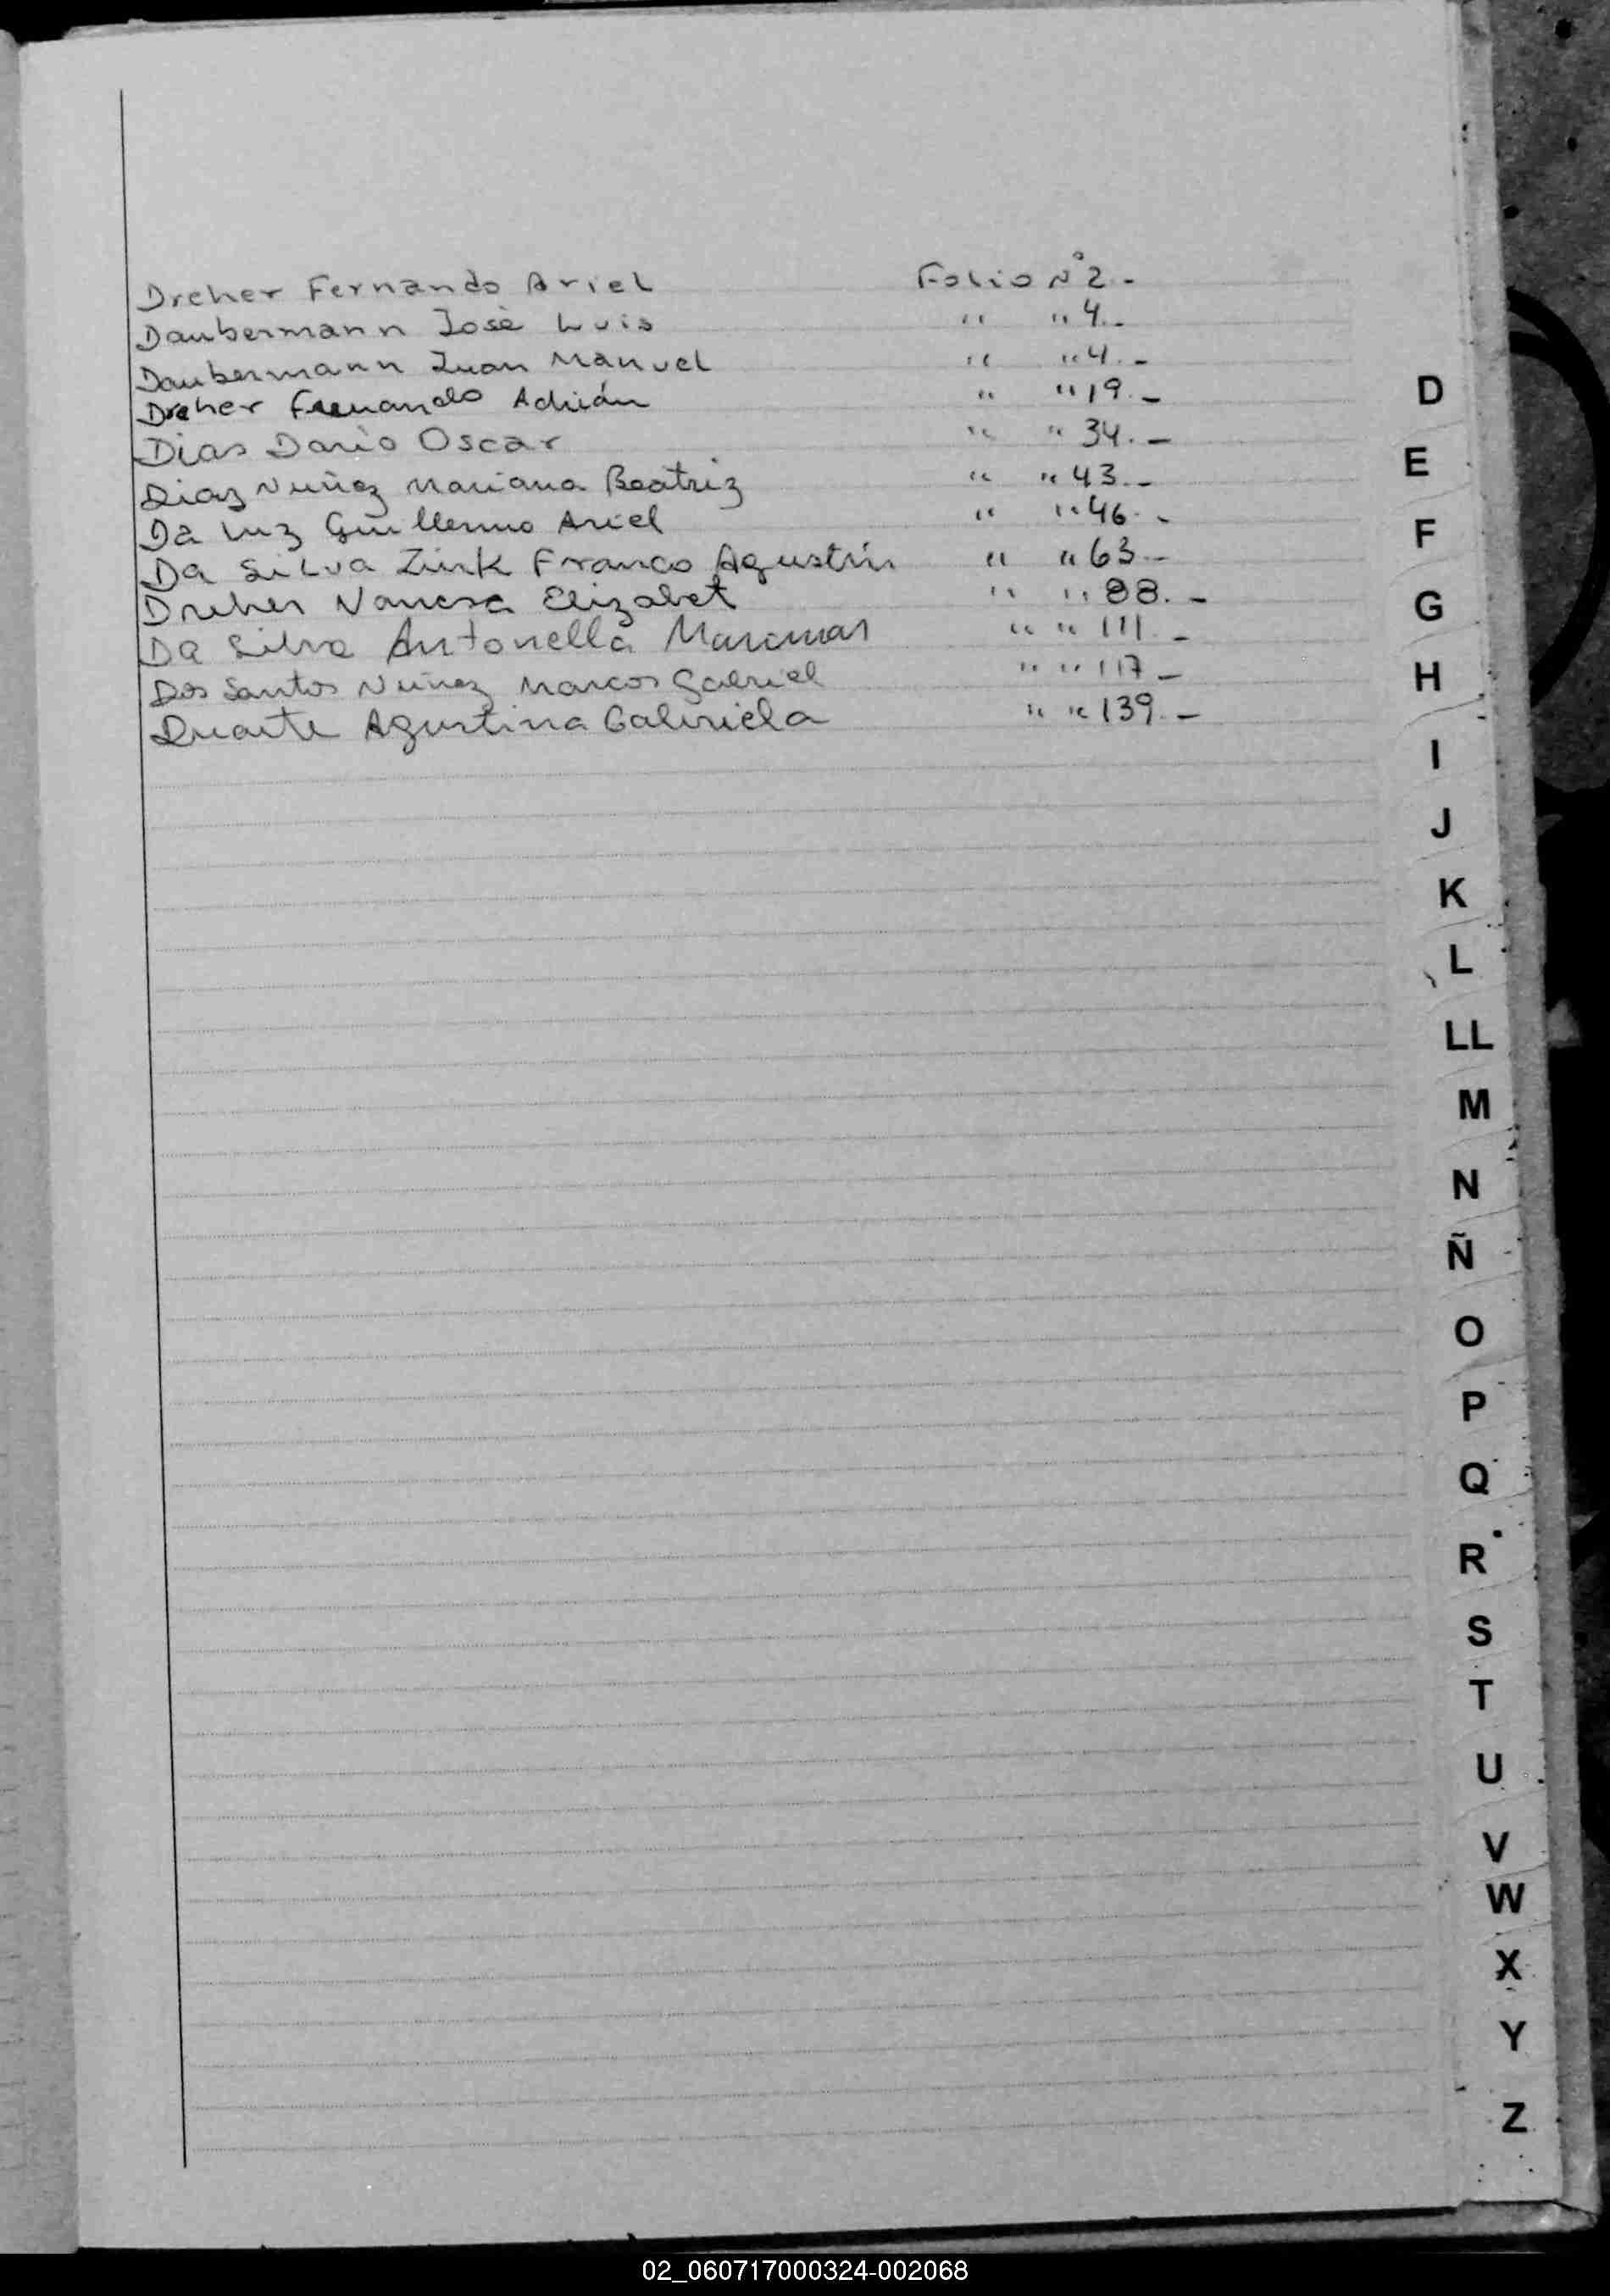 Dreher Fernando Ariel Folio N° 2.-
Daubermann José Luis " " 4.-
Daubermann Juan Manuel " " 4.-
Dreher Fernando Adrián " " 19.-
Dias Dario Oscar " " 34.-
Diaz Nuñez Mariana Beatriz " " 43.-
Da Luz Guillermo Ariel " " 46.-
Da Silva Zink Franco Agustín " " 63.-
Dreher Vanesa Elizabet " " 88.-
Da Silva Antonella " " 111.-
Dos Santos Nuñez Marcos Gabriel " " 117-
Duarte Agustina Gabriela " " 139.-
D
E
F
G
H
I
J
K
L
LL
M
N
Ñ
O
P
Q
R
S
T
U
V
W
X
Y
Z
02_060717000324-002068